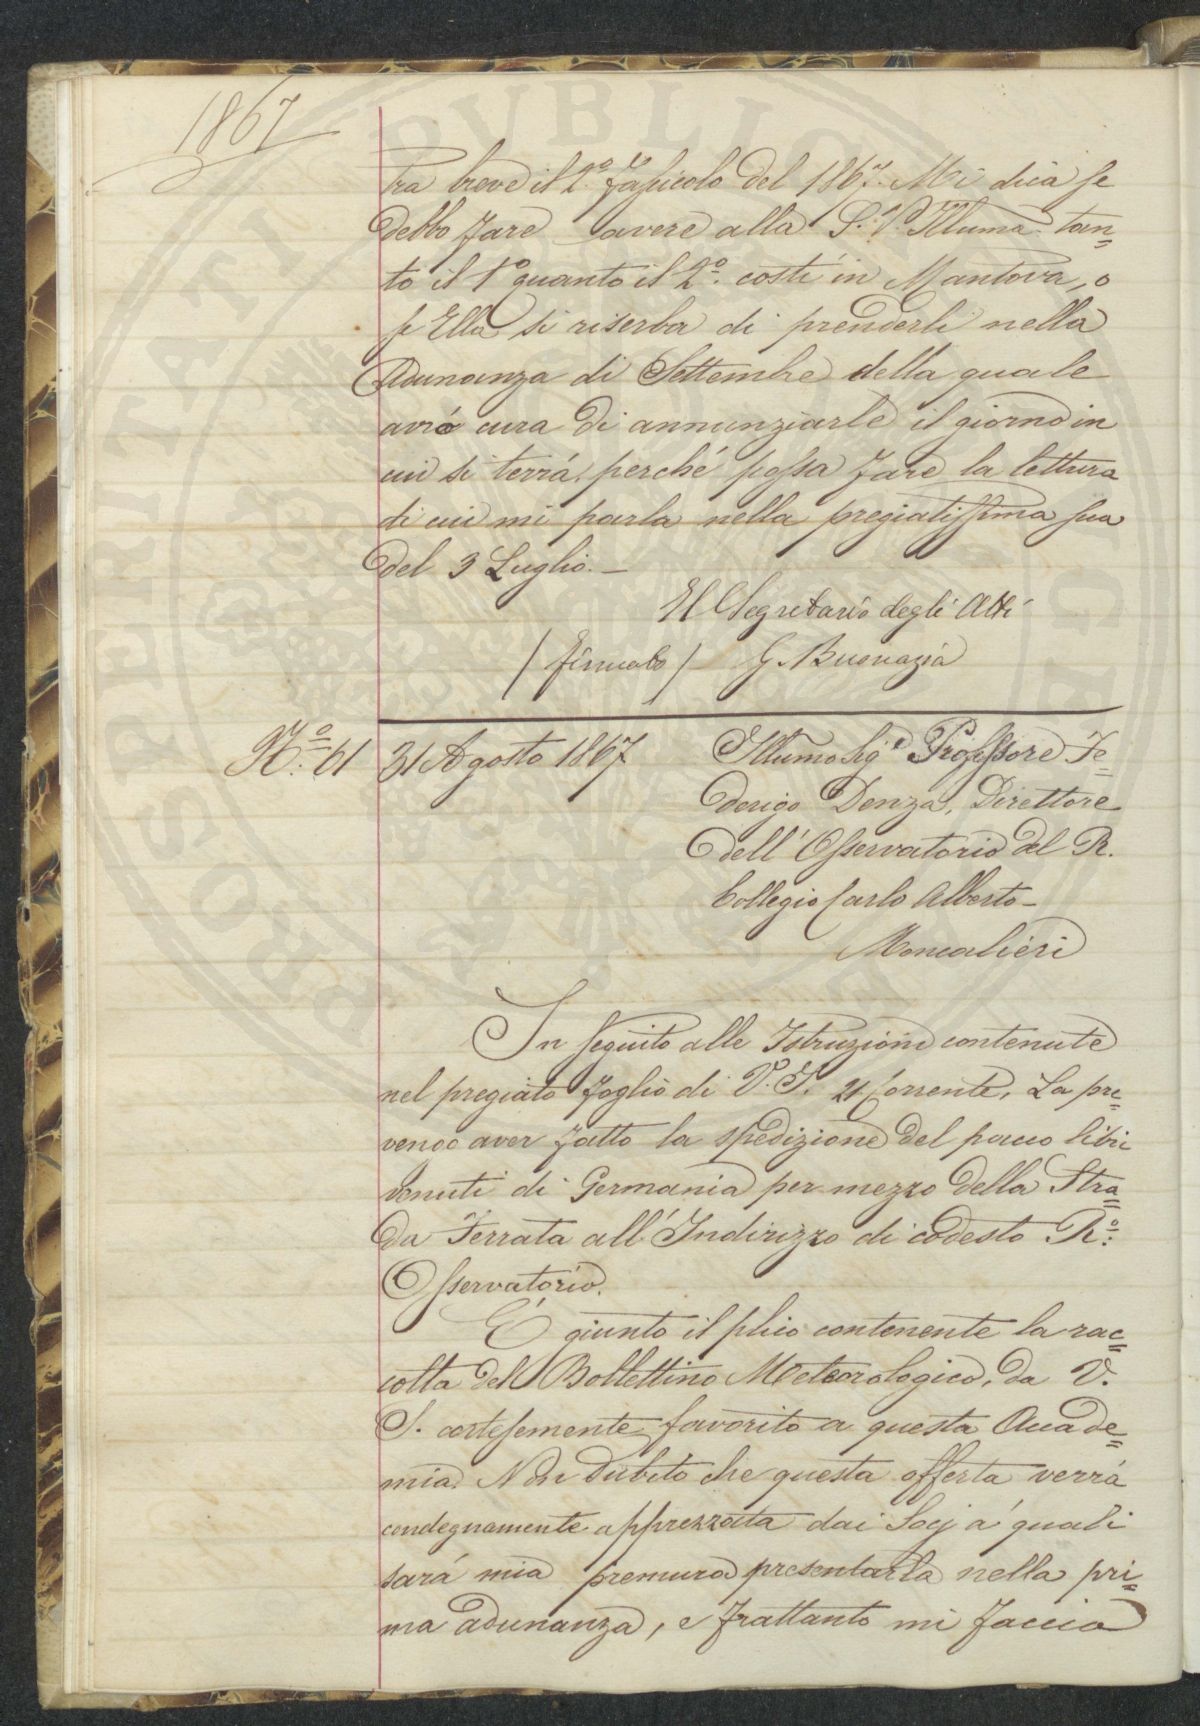 1867
Fra breve il 2.º Fascicolo del 1867. Mi dica se
debbo fare avere alla S. V. Illuma tan=
to il 1º quanto il 2º. costì in Mantova, o
se Ella si riserba di prenderli nella
Adunanza di Settembre della quale
avrò cura di annunziarle il giorno in
cui si terrà, perché possa fare la lettura
di cui mi parla nella pregiatissima sua
del 3 Luglio. —
Il Segretario degli Atti
/ firmato / G. Buonazia
Nº. 61 31 Agosto 1867 Illumo Sigre Professore Fe=
derigo Denza, Direttore
dell' Osservatorio del R.
Collegio Carlo Alberto —
Moncalieri
In seguito alle Istruzioni contenute
nel pregiato foglio di V. S. 21 Corrente, La pre=
vengo aver fatto la spedizione del pacco libri
venuti di Germania per mezzo della Stra=
da Ferrata all' Indirizzo di codesto Rº:
Osservatorio.
É giunto il plico contenente la rac=
colta del Bollettino Meteorologico, da V.
S. cortesemente favorito a questa Accade=
mia. Non dubito che questa offerta verrà
condegnamente apprezzata dai Socj a' quali
sarà mia premura presentarla nella pri=
ma adunanza, e frattanto mi faccio
PROSPERITATI PUBLICAE